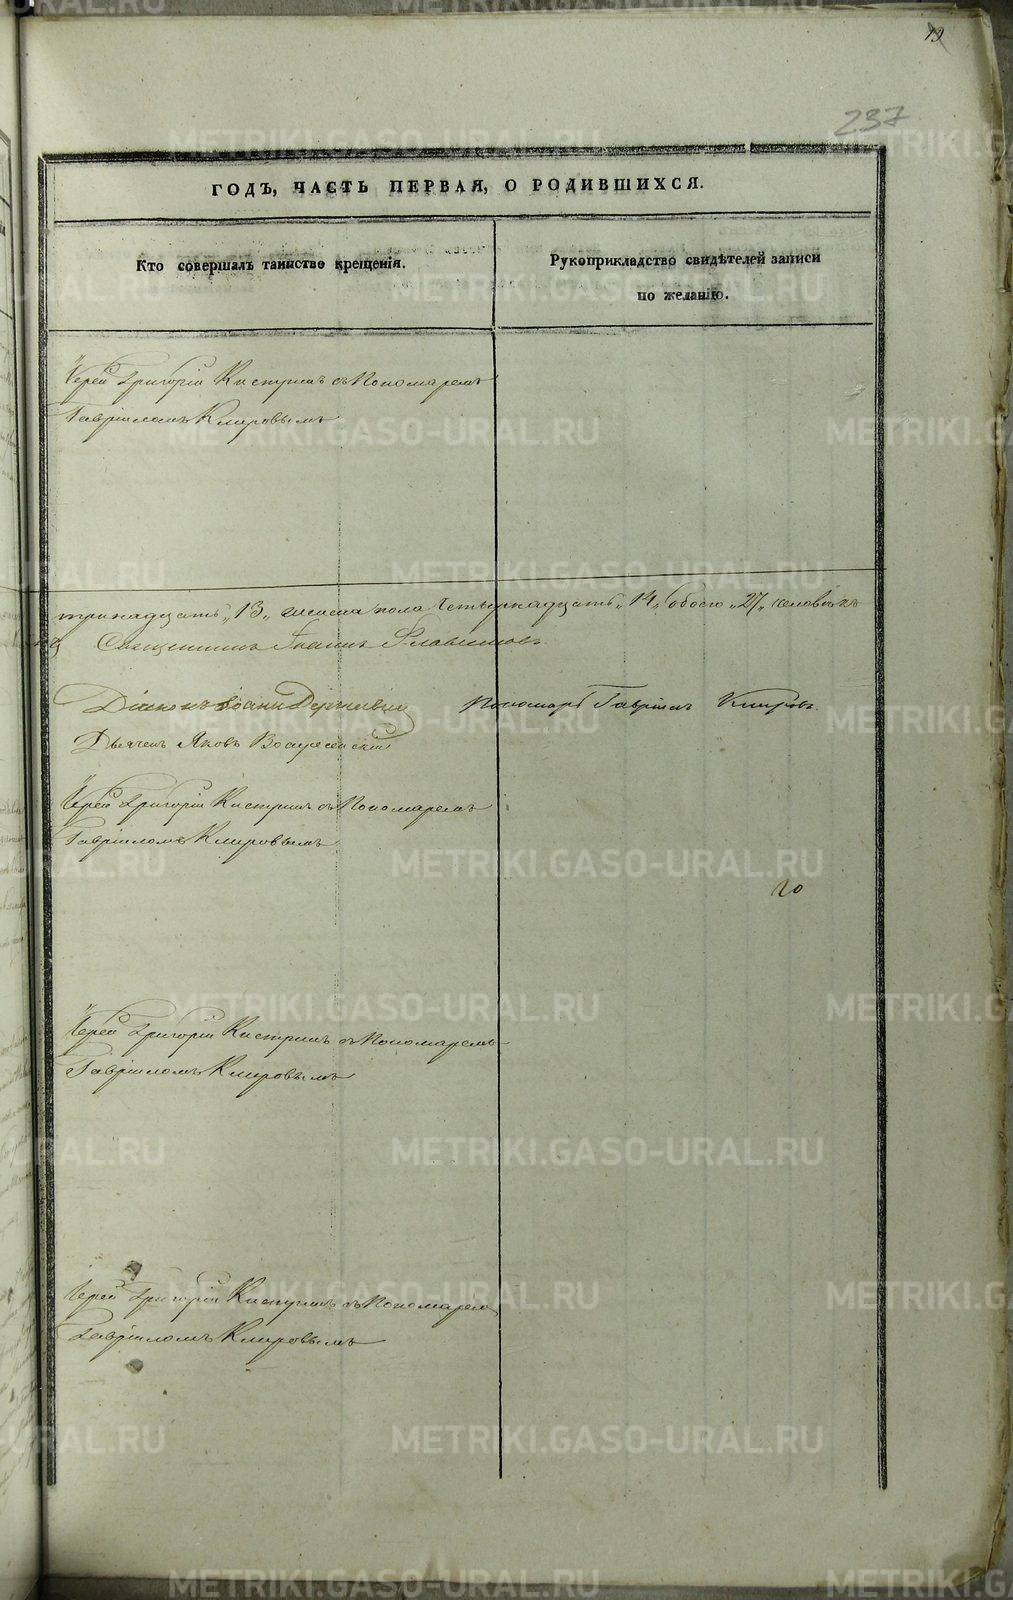 19
237
ГОДЪ, ЧАСТЬ ПЕРВАЯ, О РОДИВШИХСЯ.
Кто совершалъ таинство крещенія.
Рукоприкладство свидѣтелей записи
по желанію.
Іерей Григорій Кастринъ съ Пономаремъ
Гавріиломъ Кыировымъ
тринадцать „13„ женска пола Четырнадцать „14„ обоего „27„ человѣкъ
Священникъ Іоаннъ
Діаконъ Іоаннъ Державинъ
Пономарь Гавріилъ Кыировъ.
Дьячекъ Яковъ Воскресенскій
Іерей Григорій Кастринъ съ Пономаремъ
Гавріиломъ Кыировымъ
20
Іерей Григорій Кастринъ съ Пономаремъ
Гавріиломъ Кыировымъ
Іерей Григорій Кастринъ съ Пономаремъ
Гавріиломъ Кыировымъ
METRIKI.GASO-URAL.RU